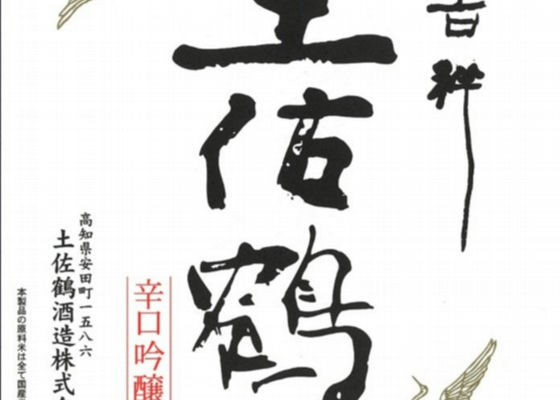 吉祥
土佐鶴
辛口吟醸
高知県安田町一五八六
土佐鶴酒造株式会
本製品の原料米は全て国産